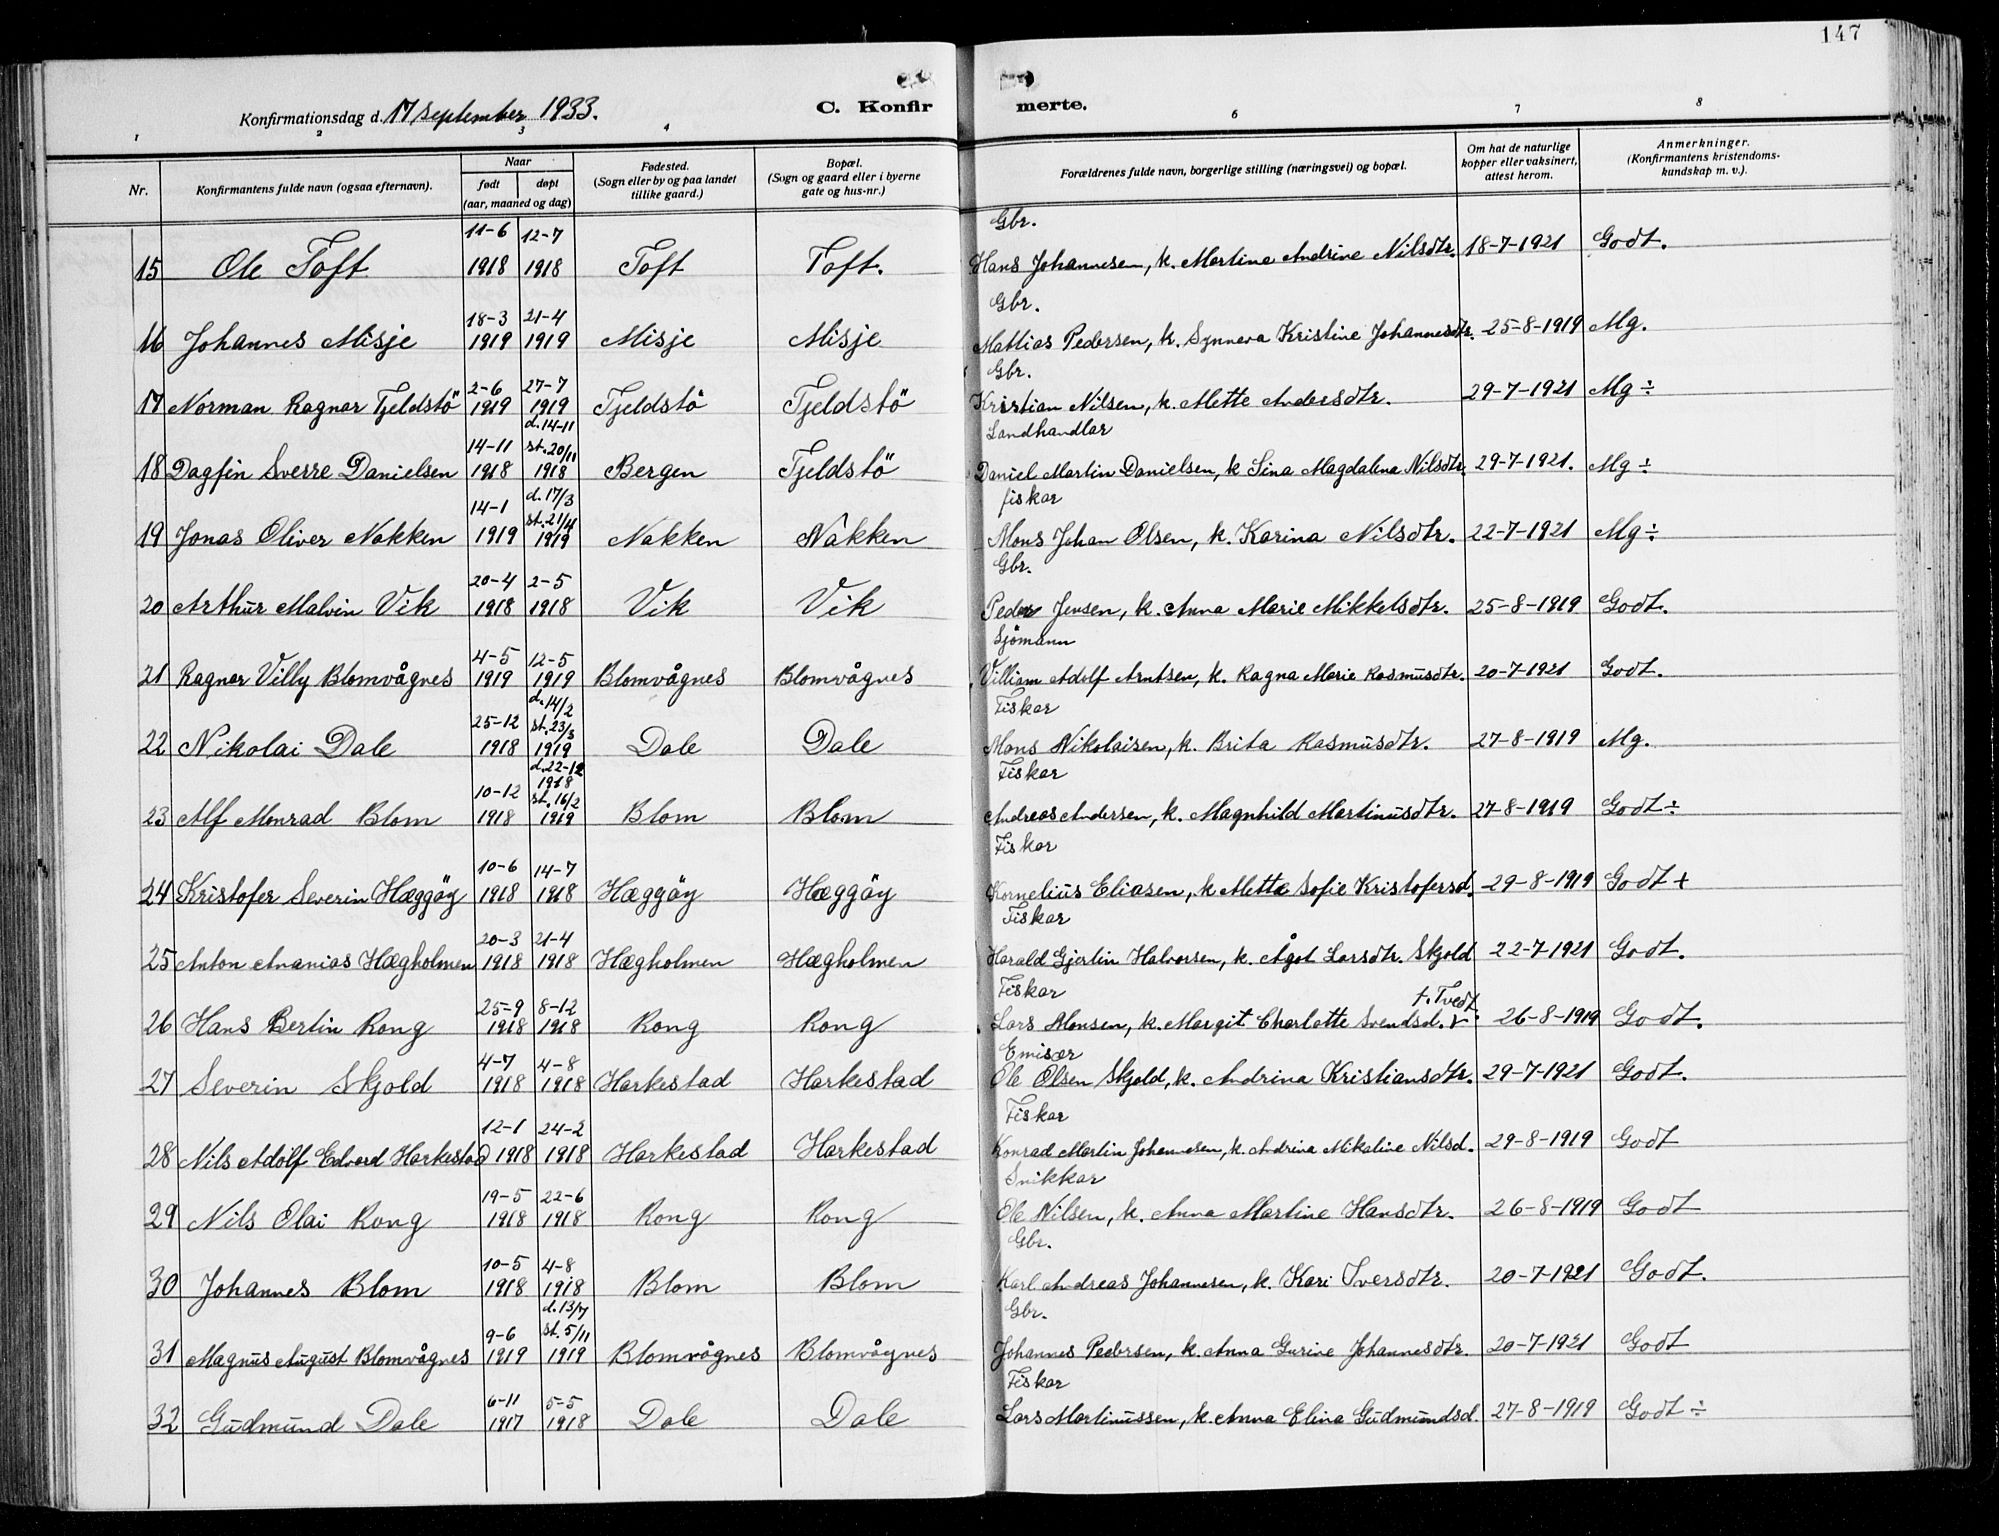 147
Konfirmationsdag d. 17 september 1933.
C. Konfir merte.
1 2 3 4 6 7 8
Nr. Konfirmantens fulde navn (ogsaa efternavn). Naar født døpt (aar, maaned og dag) Fødested. (Sogn eller by og paa landet tillike gaard.) Bopæl. (Sogn og gaard eller i byerne gate og hus-nr.) Forældrenes fulde navn, borgerlige stilling (næringsvei) og bopæl. Om hat de naturlige kopper eller vaksinert, attest herom. Anmerkninger. (Konfirmantens kristendoms-kundskap m. v.).
11-6 12-7 Gbr.
15 Ole Toft 1918 1918 Toft Toft. Hans Johannesen, k. Martine Andrine Nilsdtr. 18-7-1921 Godt.
18-3 21-4 Gbr.
16 Johannes Misje 1919 1919 Misje Misje Mattias Pedersen, k. Synneva Kristine Johannesdtr. 25-8-1919 Mg.
2-6 27-7 Gbr.
17 Norman Ragnar Tjeldstö 1919 1919 Tjeldstö Tjeldstö Kristian Nilsen, k. Mette Andersdtr. 29-7-1921 Mg ÷
14-11 d. 14-11 st. 20/11 Landhandlar
18 Dagfin Sverre Danielsen 1918 1918 Bergen Tjeldstö Daniel Martin Danielsen, k Sina Magdalena Nilsdtr. 29-7-1921. Mg ÷
14-1 d. 17/3 st. 21/4 fiskar
19 Jonas Oliver Nakken 1919 1919 Nakken Nakken Mons Johan Olsen, k. Karina Nilsdtr. 22-7-1921 Mg ÷
20-4 2-5 Gbr.
20 Arthur Malvin Vik 1918 1918 Vik Vik Peder Jensen, k. Anna Marie Mikkelsdtr. 25-8-1919 Godt.
4-5 12-5 Sjömann
21 Ragnar Villy Blomvågnes 1919 1919 Blomvågnes Blomvågnes Villiam Adolf Arntsen, k. Ragna Marie Rasmusdtr. 20-7-1921 Godt.
25-12 d. 14/2 st. 23/3 Fiskar
22 Nikolai Dale 1918 1919 Dale Dale Mons Nikolaisen, k. Brita Rasmusdtr. 27-8-1919 Mg.
10-12 d. 22-12 1918 st. 16/2 Fiskar
23 Alf Monrad Blom 1918 1919 Blom Blom Andreas Andersen, k. Magnhild Martinusdtr. 27-8-1919 Godt ÷
10-6 14-7 Fiskar
24 Kristofer Severin Hæggöy 1918 1918 Hæggöy Hæggöy Kornelius Eliasen, k Mette Sofie Kristofersd. 29-8-1919 Godt +
20-3 21-4 Fiskar
25 Anton Ananias Hægholmen 1918 1918 Hægholmen Hægholmen Harald Gjertin Halvorsen, k. Ågot Larsdtr. Skjold 22-7-1921 Godt.
25-9 8-12 Fiskar f. Tvedt.
26 Hans Bertin Rong 1918 1918 Rong Rong Lars Monsen, k. Margit Charlotte Svendsd. 26-8-1919 Godt.
4-7 4-8 Emisær
27 Severin Skjold 1918 1918 Harkestad Harkestad Ole Olsen Skjold, k. Andrina Kristiansdtr. 29-7-1921 Godt.
12-1 24-2 Fiskar
28 Nils Adolf Edvard Harkestad 1918 1918 Harkestad Harkestad Konrad Martin Johannesen, k. Andrina Mikaline Nilsd. 29-8-1919 Godt
19-5 22-6 Snikkar
29 Nils Olai Rong 1918 1918 Rong Rong Ole Nilsen, k. Anna Martine Hansdtr. 26-8-1919 Godt
10-5 4-8 Gbr.
30 Johannes Blom 1918 1918 Blom Blom Karl Andreas Johannesen, k. Kari Iversdtr. 20-7-1921 Godt.
9-6 d. 13/7 st. 5/11 Gbr.
31 Magnus August Blomvågnes 1919 1919 Blomvågnes Blomvågnes Johannes Pedersen, k. Anna Gurine Johannesdtr. 20-7-1921 Godt
6-11 5-5 Fiskar
32 Gudmund Dale 1917 1918 Dale Dale Lars Martinussen, k. Anna Elina Gudmundsd. 27-8-1919 Godt ÷